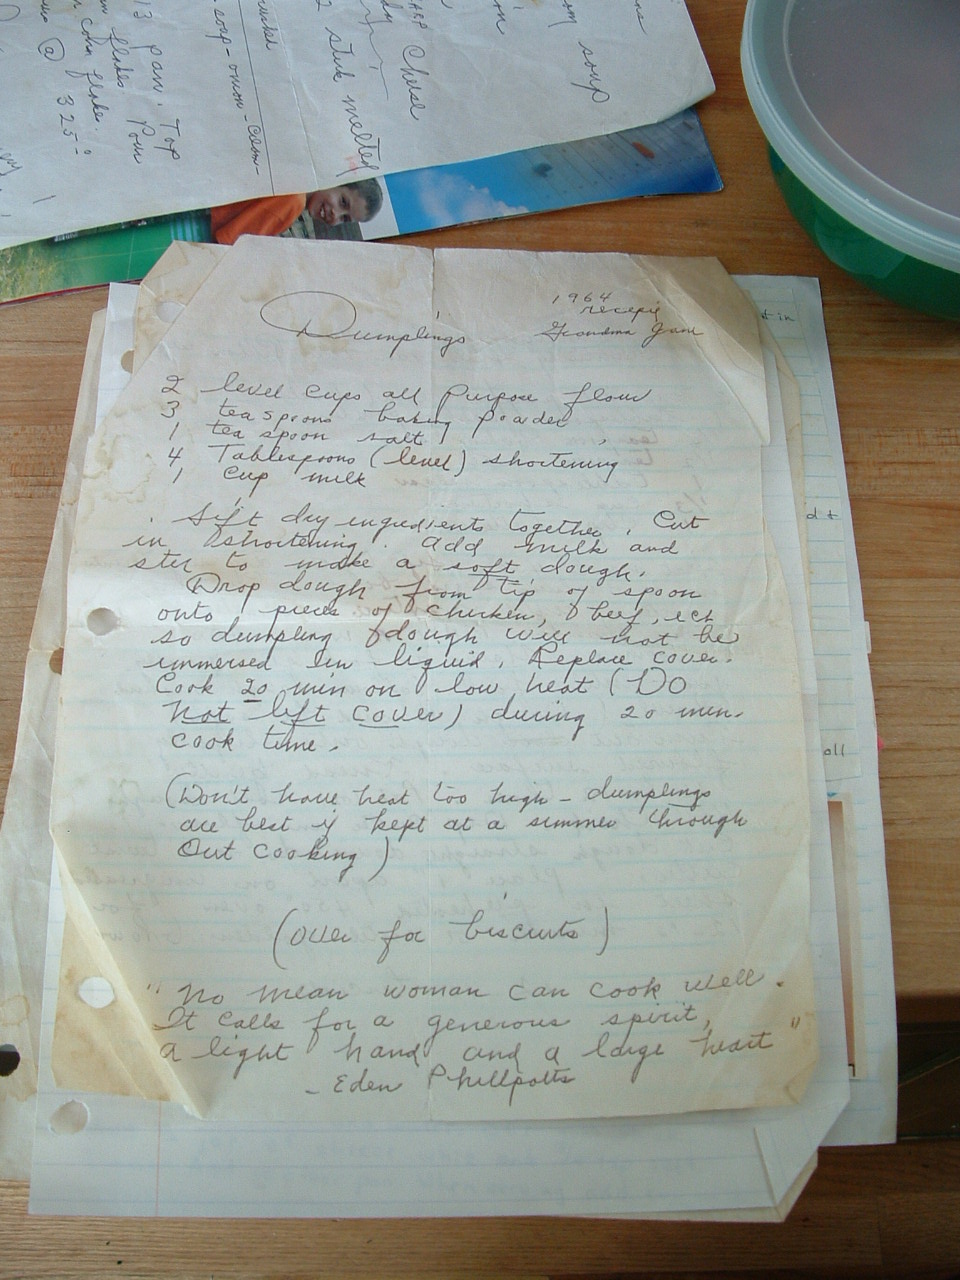 soup
Cheese
2 stick melted
soup - onion - 
13 pan. Top
Pour
corn flake.
@ 325°
1964
recepie
Dumplings Grandma Jane
2 level cups all Purpose flour
3 teaspoons baking Powder
1 teaspoon salt
4 Tablespoons (level) shortening
1 cup milk
Sift dry ingredients together. Cut
in shortening. Add milk and
stir to make a soft dough.
Drop dough from tip of spoon
onto pieces of chicken, beef, ect
so dumpling dough will not be
immersed in liquid. Replace cover.
Cook 20 min on low heat (Do
not lift cover) during 20 min.
cook time.
(Don't have heat too high - dumplings
are best if kept at a simmer through
out cooking)
(over for biscuits)
"No mean woman can cook well.
It calls for a generous spirit,
a light hand and a large heart"
- Eden Phillpotts
in
d +
oll